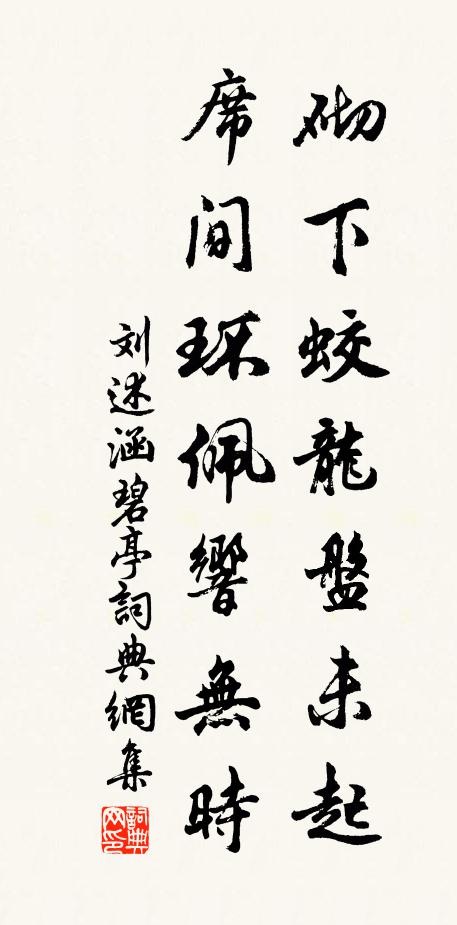 砌下蛟龍盤未起
席间环佩響無時
刘述涵碧亭詞典網集
詞典网印